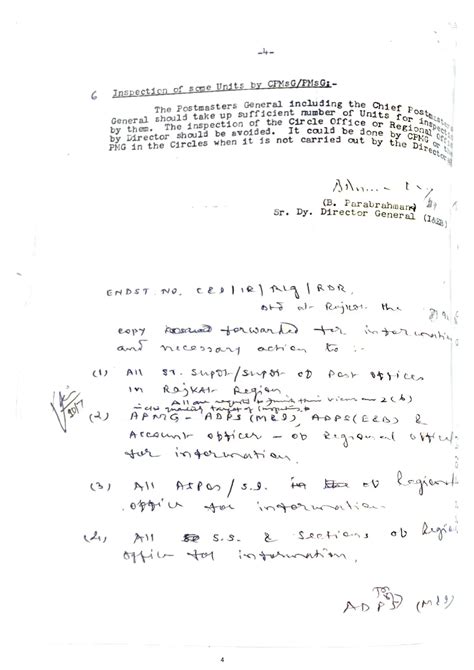 -4-
6 Inspection of some Units by CPMsG/PMsG:-
The Postmasters General including the Chief Postmasters
General should take up sufficient number of Units for inspection
by them. The inspection of the Circle Office or Regional Office
by Director should be avoided. It could be done by CPMG or the
PMG in the Circles when it is not carried out by the Director
(B. Parabrahman)
Sr. Dy. Director General (I&EB)
ENDST. NO. C&I/IR/Rlg/RDR.
Dtd at Rajkot the
copy forwarded for information
and necessary action to :-
(1) All Sr. Supdt/Supdt of Post offices
in Rajkot Region.
(2) APMG - ADPS (M&I), ADPS(E&B) &
Account officer - of Regional office
for information.
(3) All ASPOs/S.I. of Regional
office for information.
(4) All S.S. & Sections of Region
office for information.
ADPS (M&I)
4